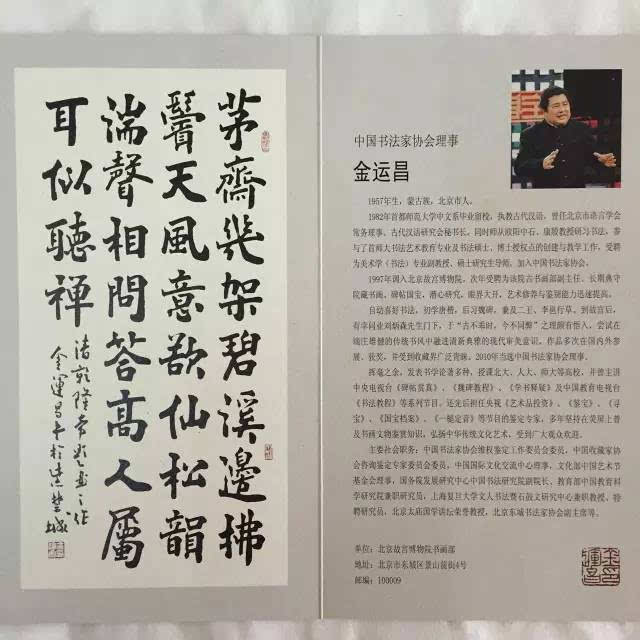 茅齋幾架碧溪邊拂
鬢天風意欲仙松韻
湍聲相問答高人屬
耳似聽禪
清乾隆帝題畫之作
金運昌書於
中国书法家协会理事
金运昌
1957年生，蒙古族，北京市人。
1982年首都师范大学中文系毕业留校，执教古代汉语，曾任北京市语言学会
常务理事、古代汉语研究会秘书长。同时师从欧阳中石、康殷教授研习书法，参
与了首师大书法艺术教育专业及书法硕士、博士授权点的创建与教学工作，受聘
为美术学（书法）专业副教授、硕士研究生导师。加入中国书法家协会。
1997年调入北京故宫博物院，次年受聘为该院古书画部副主任。长期典守
院藏书画、碑帖国宝，潜心研究，眼界大开，艺术修养与鉴别能力迅速提高。
自幼喜好书法，初学唐楷，后习魏碑，兼及二王、李邕行草。到故宫后，
有幸问业刘炳森先生门下，于“古不乖时，今不同弊”之理颇有悟入，尝试在
端庄雄健的传统书风中融进清新典雅的现代审美意识。作品多次在国内外参
展、获奖，并受到收藏界广泛青睐。2010年当选中国书法家协会理事。
挥毫之余，发表书学论著多种，授课北大、人大、师大等高校，并曾主讲
中央电视台《碑帖赏真》、《魏碑教程》、《学书释疑》及中国教育电视台
《书法教程》等系列节目，还先后担任央视《艺术品投资》、《鉴宝》、《寻
宝》、《国宝档案》、《一槌定音》等节目的鉴定专家，多年坚持在荧屏上普
及书画文物鉴赏知识，弘扬中华传统文化艺术，受到广大观众欢迎。
主要社会职务：中国书法家协会维权鉴定工作委员会委员，中国收藏家协
会咨询鉴定专家委员会委员，中国国际文化交流中心理事，文化部中国艺术节
基金会理事，国务院发展研究中心中国书法研究院副院长，教育部中国教育科
学研究院兼职研究员，上海复旦大学文人书法暨石鼓文研究中心兼职教授、特
聘研究员，北京太庙国学讲坛荣誉教授，北京东城书法家协会副主席等。
单位：北京故宫博物院书画部
地址：北京市东城区景山前街4号
邮编：100009
金運昌